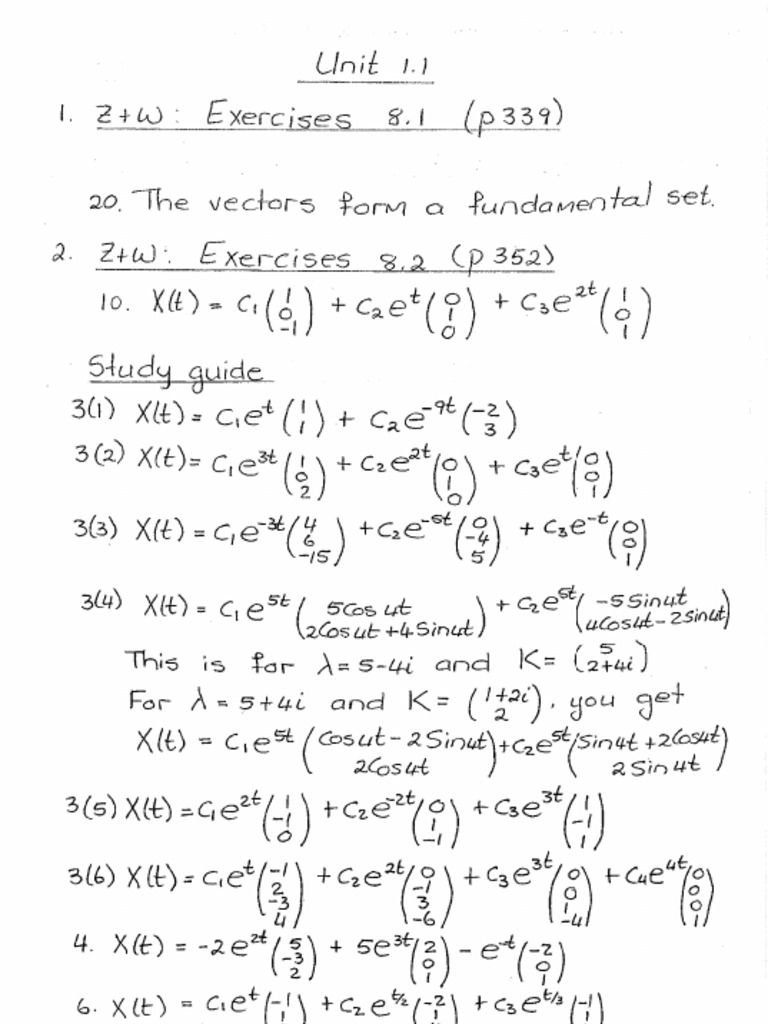 Unit 1.1
1. Z+W: Exercises 8.1 (p339)
20. The vectors form a fundamental set.
2. Z+W: Exercises 8.2 (p352)
10. X(t) = C₁(1 0 -1) + C₂eᵗ(0 1 0) + C₃e²ᵗ(1 0 1)
Study guide
3(1) X(t) = C₁eᵗ(1 1) + C₂e⁻⁹ᵗ(-2 3)
3(2) X(t) = C₁e³ᵗ(1 0 2) + C₂e²ᵗ(0 1 0) + C₃eᵗ(0 0 1)
3(3) X(t) = C₁e⁻³ᵗ(4 6 -15) + C₂e⁻⁵ᵗ(0 -4 5) + C₃e⁻ᵗ(0 0 1)
3(4) X(t) = C₁e⁵ᵗ(5Cos4t 2Cos4t+4Sin4t) + C₂e⁵ᵗ(-5Sin4t 4Cos4t-2Sin4t)
This is for λ=5-4i and K= (5 2+4i)
For λ=5+4i and K= (1+2i 2), you get
X(t) = C₁e⁵ᵗ(Cos4t-2Sin4t 2Cos4t)+C₂e⁵ᵗ(Sin4t+2Cos4t 2Sin4t)
3(5) X(t) = C₁e²ᵗ(1 -1 0) + C₂e⁻²ᵗ(0 1 -1) + C₃e³ᵗ(1 -1 1)
3(6) X(t) = C₁eᵗ(-1 2 -3 4) + C₂e²ᵗ(0 -1 3 -6) + C₃e³ᵗ(0 0 1 -4) + C₄e⁴ᵗ(0 0 0 1)
4. X(t) = -2e²ᵗ(5 -3 2) + 5e³ᵗ(2 0 1) - e⁻ᵗ(-2 0 1)
6. X(t) = C₁eᵗ(-1 + C₂e^(t/2)(-2 + C₃e^(t/3)(-1